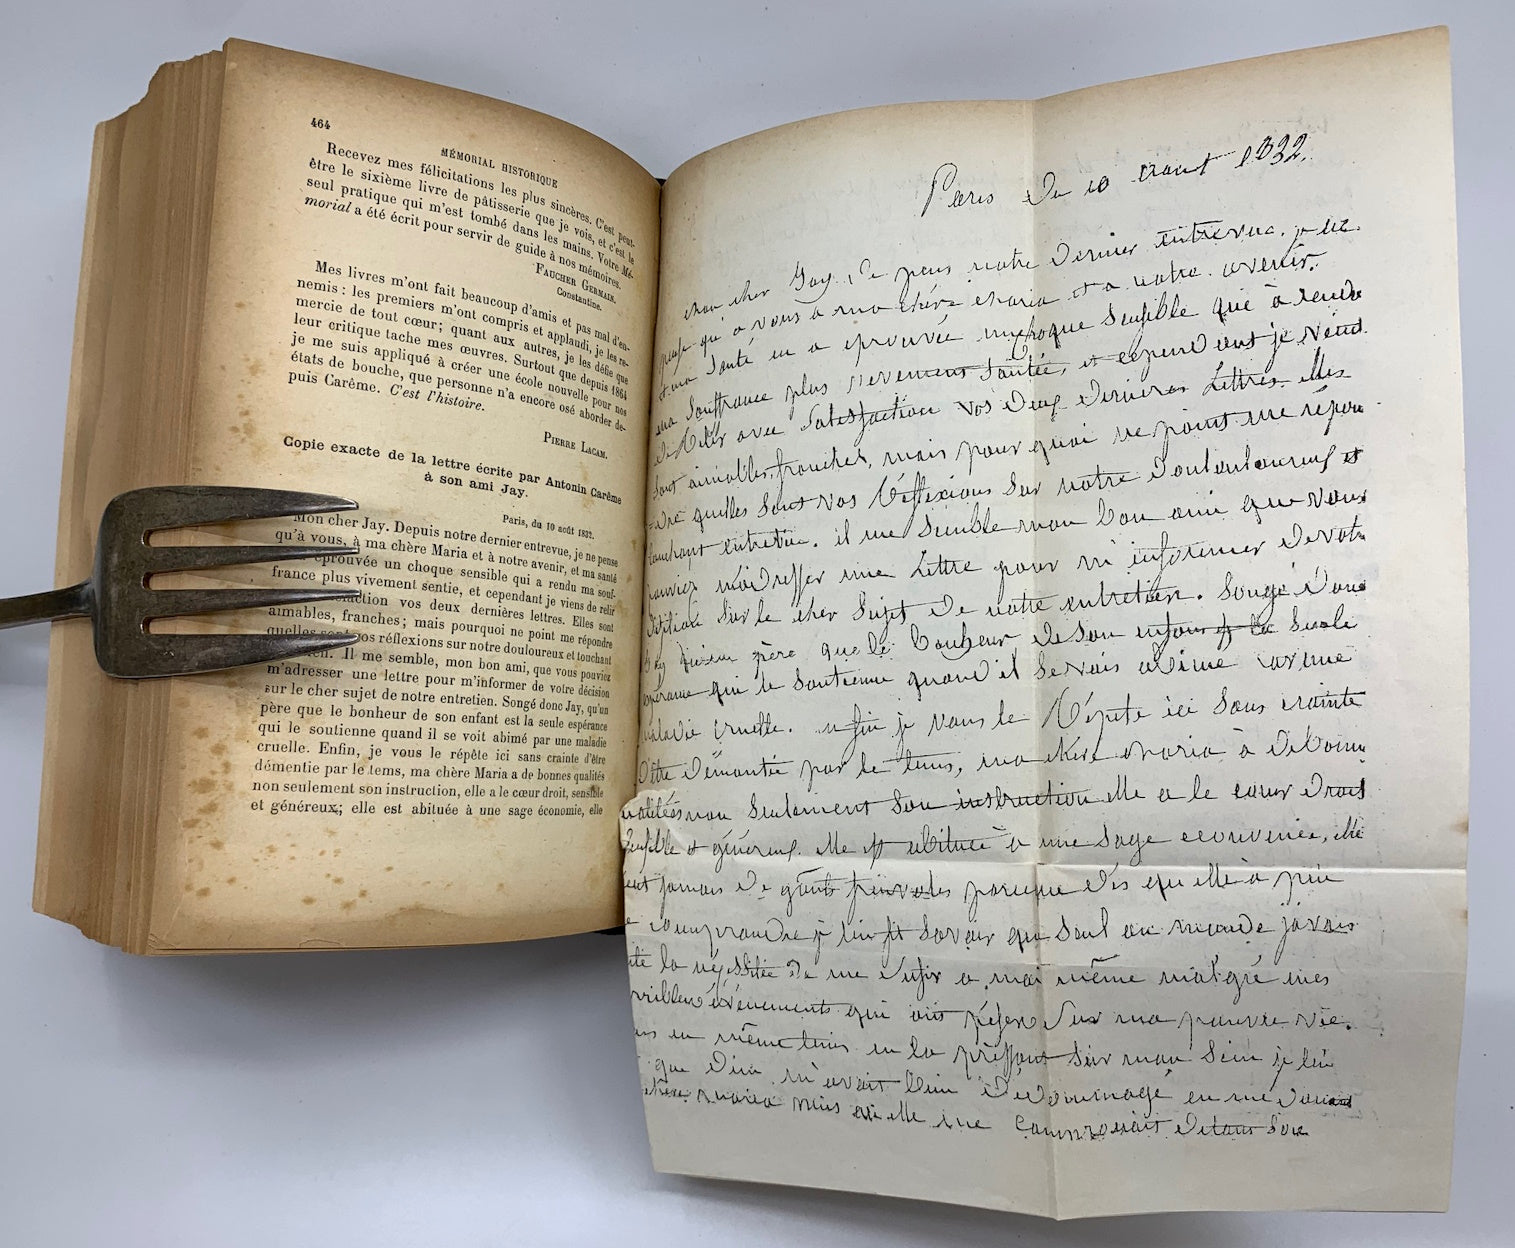 464
MÉMORIAL HISTORIQUE
Recevez mes félicitations les plus sincères. C'est peut-
être le sixième livre de pâtisserie que je vois, et c'est le
seul pratique qui m'est tombé dans les mains. Votre Mé-
morial a été écrit pour servir de guide à nos mémoires.
FAUCHER GERMAIN.
Constantine.
Mes livres m'ont fait beaucoup d'amis et pas mal d'en-
nemis : les premiers m'ont compris et applaudi, je les re-
mercie de tout cœur; quant aux autres, je les défie que
leur critique tache mes œuvres. Surtout que depuis 1864
je me suis appliqué à créer une école nouvelle pour nos
états de bouche, que personne n'a encore osé aborder de-
puis Carême. C'est l'histoire.
PIERRE LACAM.
Copie exacte de la lettre écrite par Antonin Carême
à son ami Jay.
Paris, du 10 août 1832.
Mon cher Jay. Depuis notre dernier entrevue, je ne pense
qu'à vous, à ma chère Maria et à notre avenir, et ma santé
éprouvée un choque sensible qui a rendu ma souf-
france plus vivement sentie, et cependant je viens de relir
vos deux dernières lettres. Elles sont
aimables, franches; mais pourquoi ne point me répondre
quelles sont vos réflexions sur notre douloureux et touchant
Il me semble, mon bon ami, que vous pouviez
m'adresser une lettre pour m'informer de votre décision
sur le cher sujet de notre entretien. Songé donc Jay, qu'un
père que le bonheur de son enfant est la seule espérance
qui le soutienne quand il se voit abimé par une maladie
cruelle. Enfin, je vous le répète ici sans crainte d'être
démentie par le tems, ma chère Maria a de bonnes qualités
non seulement son instruction, elle a le cœur droit, sensible
et généreux; elle est abituée à une sage économie, elle
Paris du 10 aout 1832.
mon cher Jay, De puis notre dernier entrevue. je ne
pense qu'a vous a ma chère maria et a notre avenir.
et ma santé en a éprouvée un choque sensible qui à rendu
ma souffrance plus vivement sentie, et cependant je viens
de relir avec satisfaction vos deux dernieres lettres. elles
sont aimables, franches, mais pour quoi ne point me répon
dre quelles sont vos réflexions sur notre douloureux et
touchant entretien. il me semble mon bon ami que vous
pouviez m'adresser une lettre pour m'informer de votre
décision sur le cher sujet de notre entretien. Songé donc
Jay qu'un père que le bonheur de son enfant est la seule
espérance qui le soutienne quand il se vois abimé par une
maladie cruelle. enfin je vous le répète ici sans crainte
d'être démentie par le tems, ma chere maria à de bonne
qualitées non seulement son instruction elle a le cœur droit
sensible et généreux. elle est abituée à une sage economie, elle
jamais de goûts frivoles parceque dès qu'elle à peu
comprendre je lui fit savoir que seul au monde j'avais
la nécessitée de me sufir a moi même malgré mes
évènements qui ont pésés sur ma pauvre vie.
en même tems en la pressant sur mon sein je lui
que dieu m'avait bien dédommagé en me donant
maria mais qu'elle me